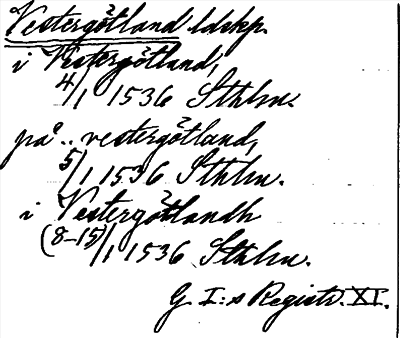 Vestergötland ldskp.
i Vestergötland,
4/1 1536 Sthlm.
på .. vestergötland,
5/1 1536 Sthlm.
i Vestergötlandh
(8-15)/1 1536 Sthlm.
G. I:s Registr. XI.